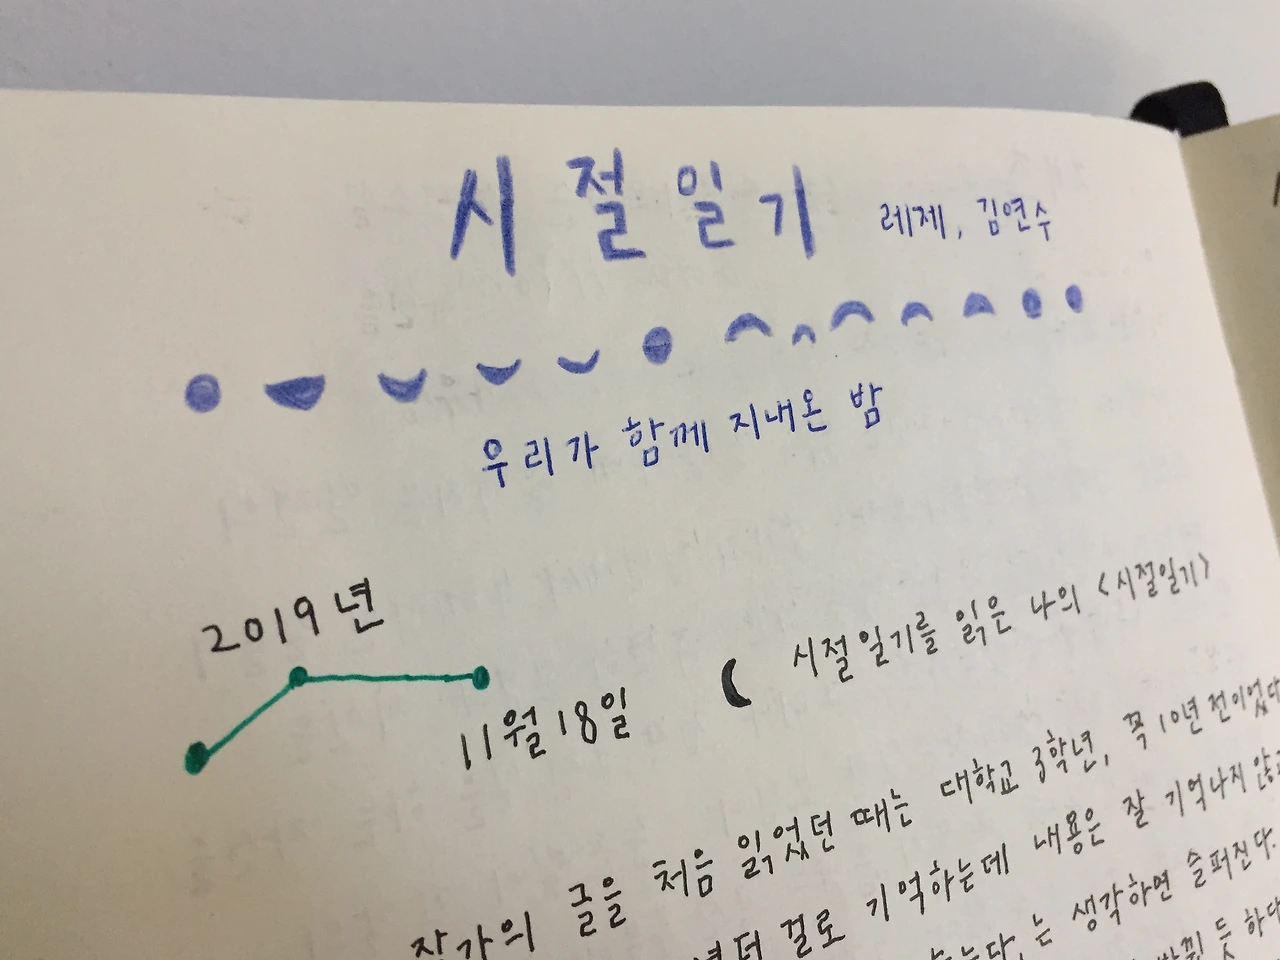 시절일기 레제, 김연수
우리가 함께 지내온 밤
2019년
11월 18일
시절일기를 읽은 나의 <시절일기>
작가의 글을 처음 읽었던 때는 대학교 3학년, 꼭 10년 전이었다
걸로 기억하는데 내용은 잘 기억나지 않
는 생각하면 슬퍼진다.
듯 하다